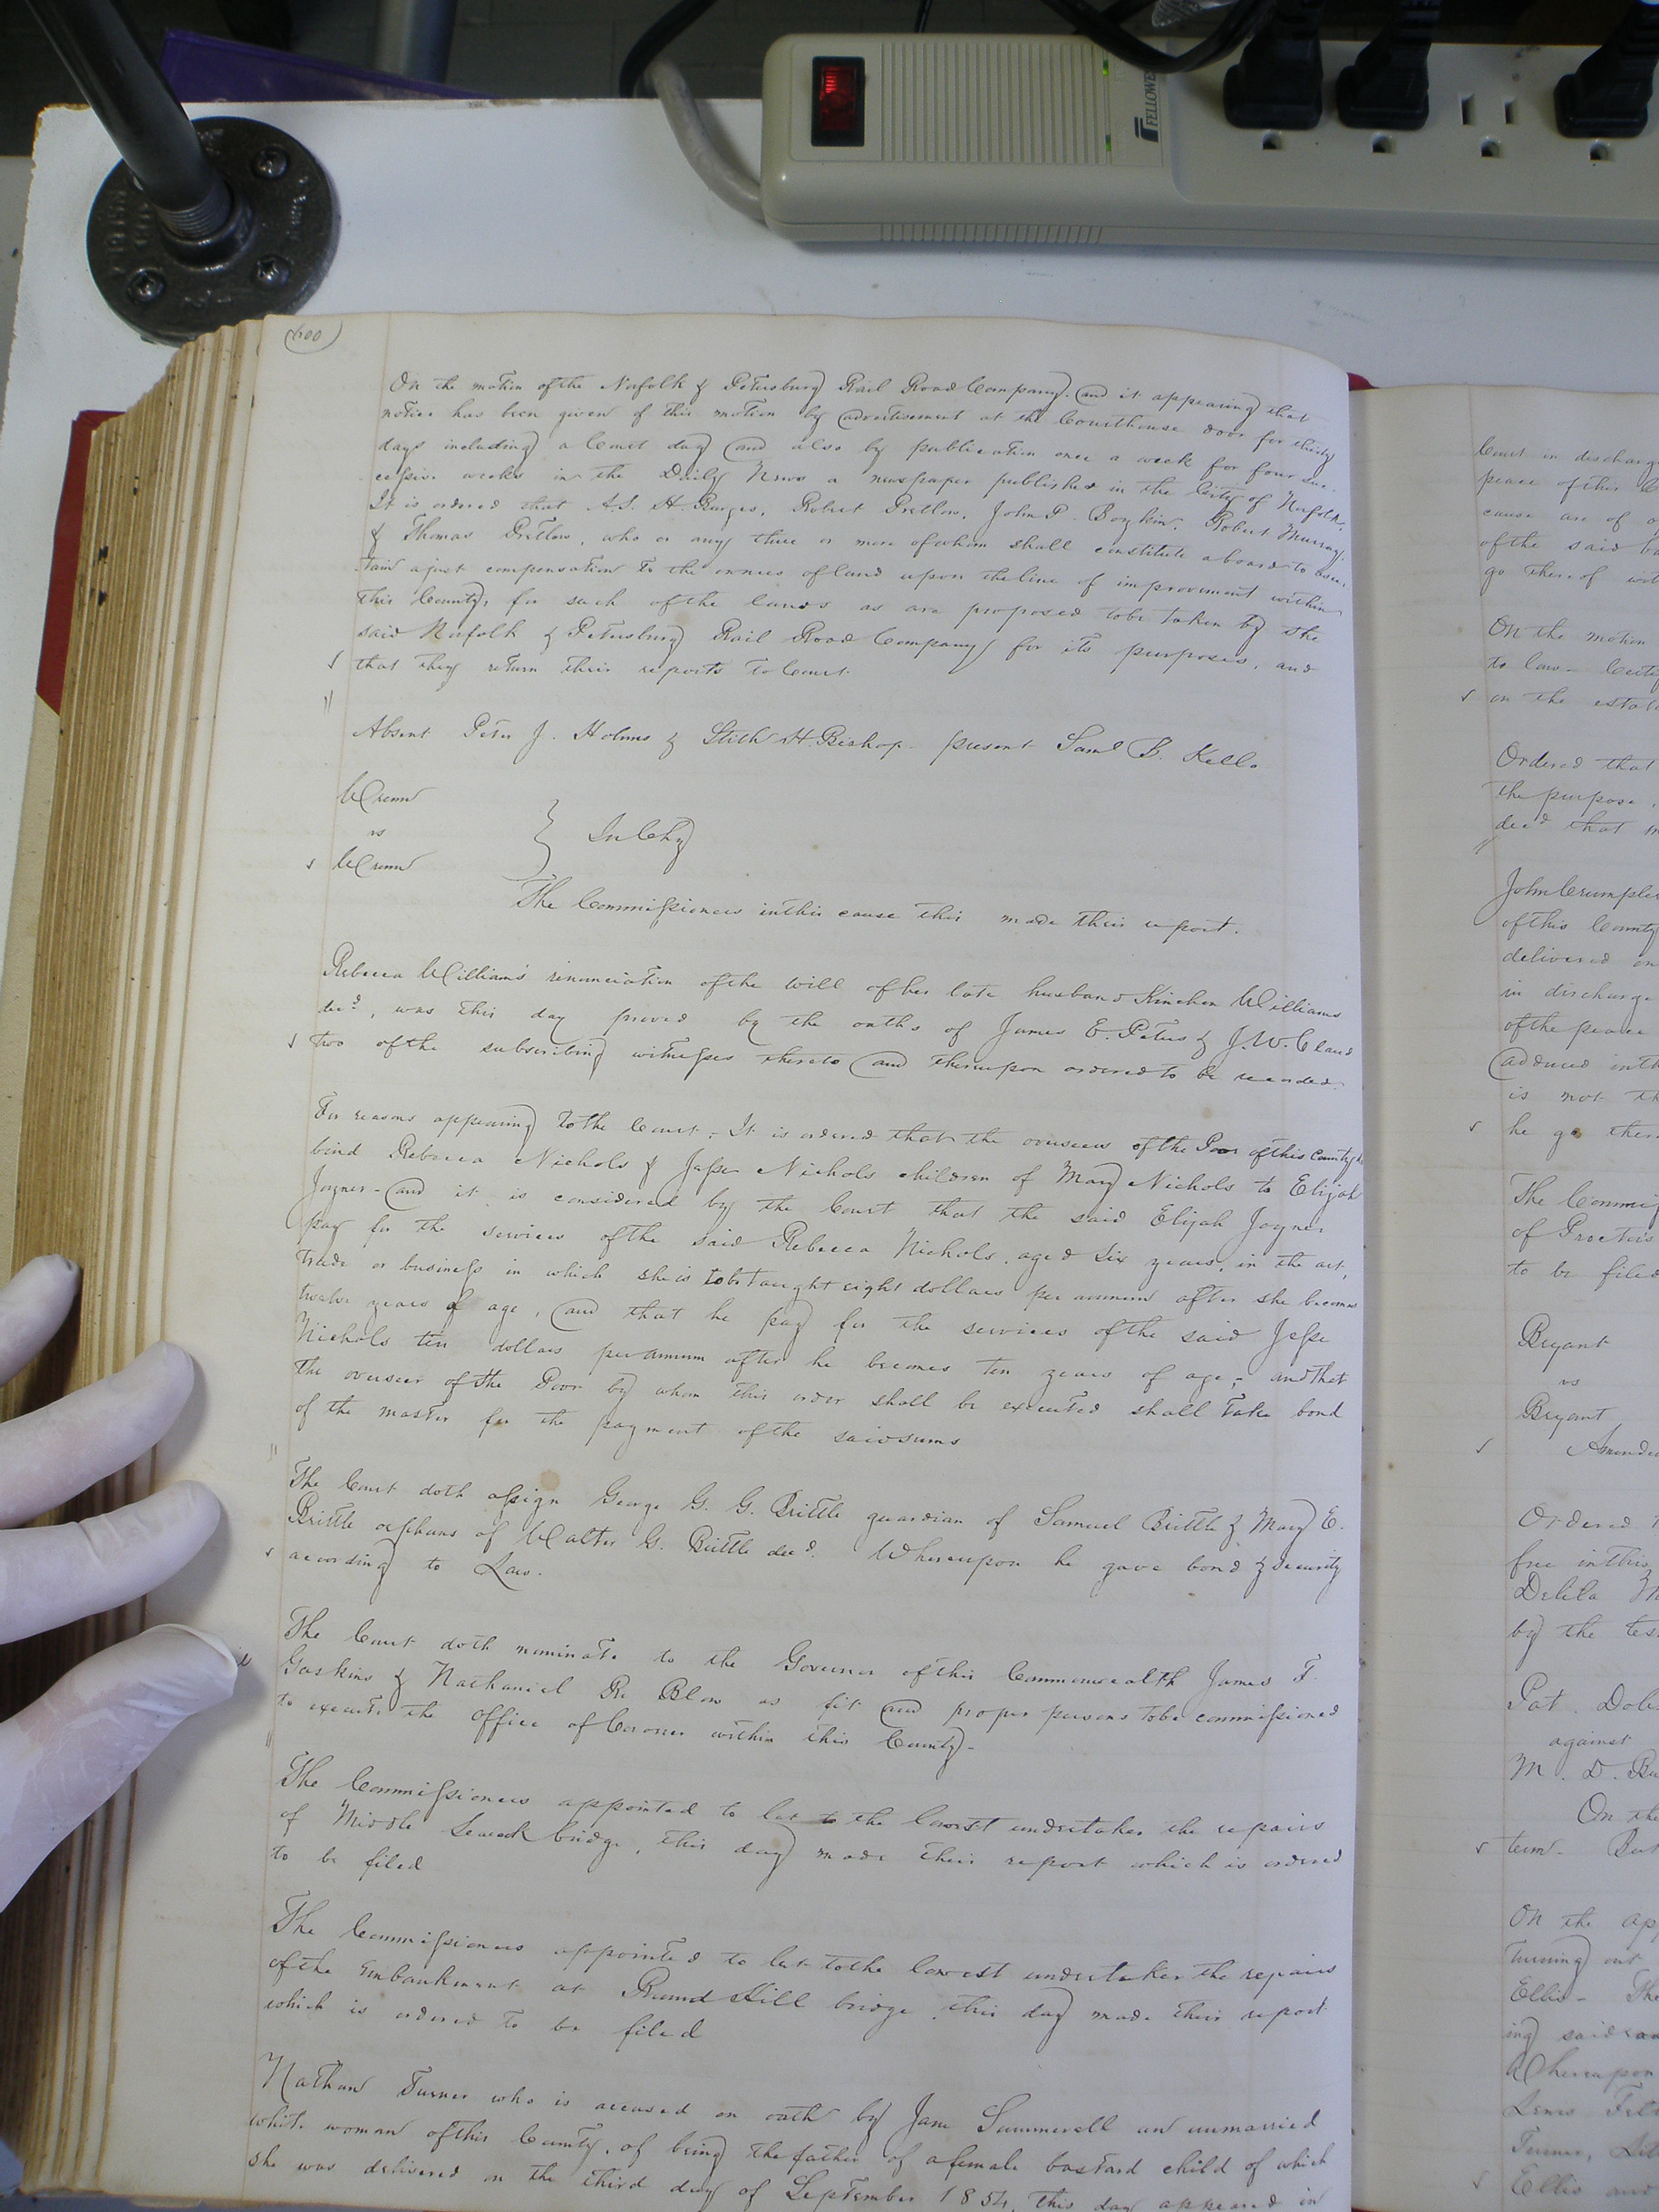 FELLOWES
600
On the motion of the Norfolk & Petersburg Rail Road Company. and it appearing that
notice has been given of this motion by advertisement at the Courthouse door for thirty
days including a Court day and also by publication once a week for four suc-
cessive weeks in the Daily News a newspaper published in the City of Norfolk,
It is ordered that A.S. H. Burges, Robert Pretlow, John P. Boykin, Robert Murray,
& Thomas Pretlow, who or any three or more of whom shall constitute a board to ascer-
tain a just compensation to the owners of land upon the line of improvement within
this County, for such of the lands as are proposed to be taken by the
said Norfolk & Petersburg Rail Road Company for its purposes, and
that they return their reports to Court.
Absent Peter J. Holmes & Stith H. Bishop - present Saml B. Kello
Wrenn
vs
Wrenn
} In Chy
The Commissioners in this cause this made their report.
Rebecca Williams' renunciation of the will of her late husband Kinchen Williams
decd, was this day proved by the oaths of James E. Peters & J. W. Claud
two of the subscribing witnesses thereto and thereupon ordered to be recorded.
For reasons appearing to the Court, It is ordered that the overseers of the Poor of this County do
bind Rebecca Nichols & Jesse Nichols children of Mary Nichols to Elijah
Joyner - and it is considered by the Court that the said Elijah Joyner
pay for the services of the said Rebecca Nichols, aged six years, in the art,
trade or business in which she is to be taught eight dollars per annum after she becomes
twelve years of age, and that he pay for the services of the said Jesse
Nichols ten dollars per annum after he becomes ten years of age; and that
the overseer of the Poor by whom this order shall be executed shall take bond
of the master for the payment of the said sums
The Court doth assign George G. G. Brittle guardian of Samuel Brittle & Mary E.
Brittle orphans of Walter G. Brittle decd. Whereupon he gave bond & security
according to Law.
The Court doth nominate to the Governor of this Commonwealth James F.
Gaskins & Nathaniel R. Blow as fit and proper persons to be commissioned
to execute the office of Coroner within this County -
The Commissioners appointed to let to the lowest undertaker the repairs
of Middle Seacock bridge, this day made their report which is ordered
to be filed
The Commissioners appointed to let to the lowest undertaker the repairs
of the Embankment at Round Hill bridge this day made their report
which is ordered to be filed
Nathan Turner who is accused on oath by Jane Summerell an unmarried
white woman of this County, of being the father of a female bastard child of which
she was delivered on the third day of September 1854, this day appeared in
Court in discharge
peace of this
cause are of
of the said
go thereof
On the motion
to law -
on the estate
Ordered that
the purpose,
decd that
John Crumpler
of this County
delivered on
in discharge
of the peace
adduced in th
is not th
he go ther
The Commiss
of Proctor's
to be filed
Bryant
vs
Bryant
Amended
Ordered
free in this
Delila
by the tes
Pat. Dole
against
M. D. Bu
On the
term - But
On the ap
turning out
Ellis - The
ing said
Whereupon
Lewis
Turner,
Ellis and